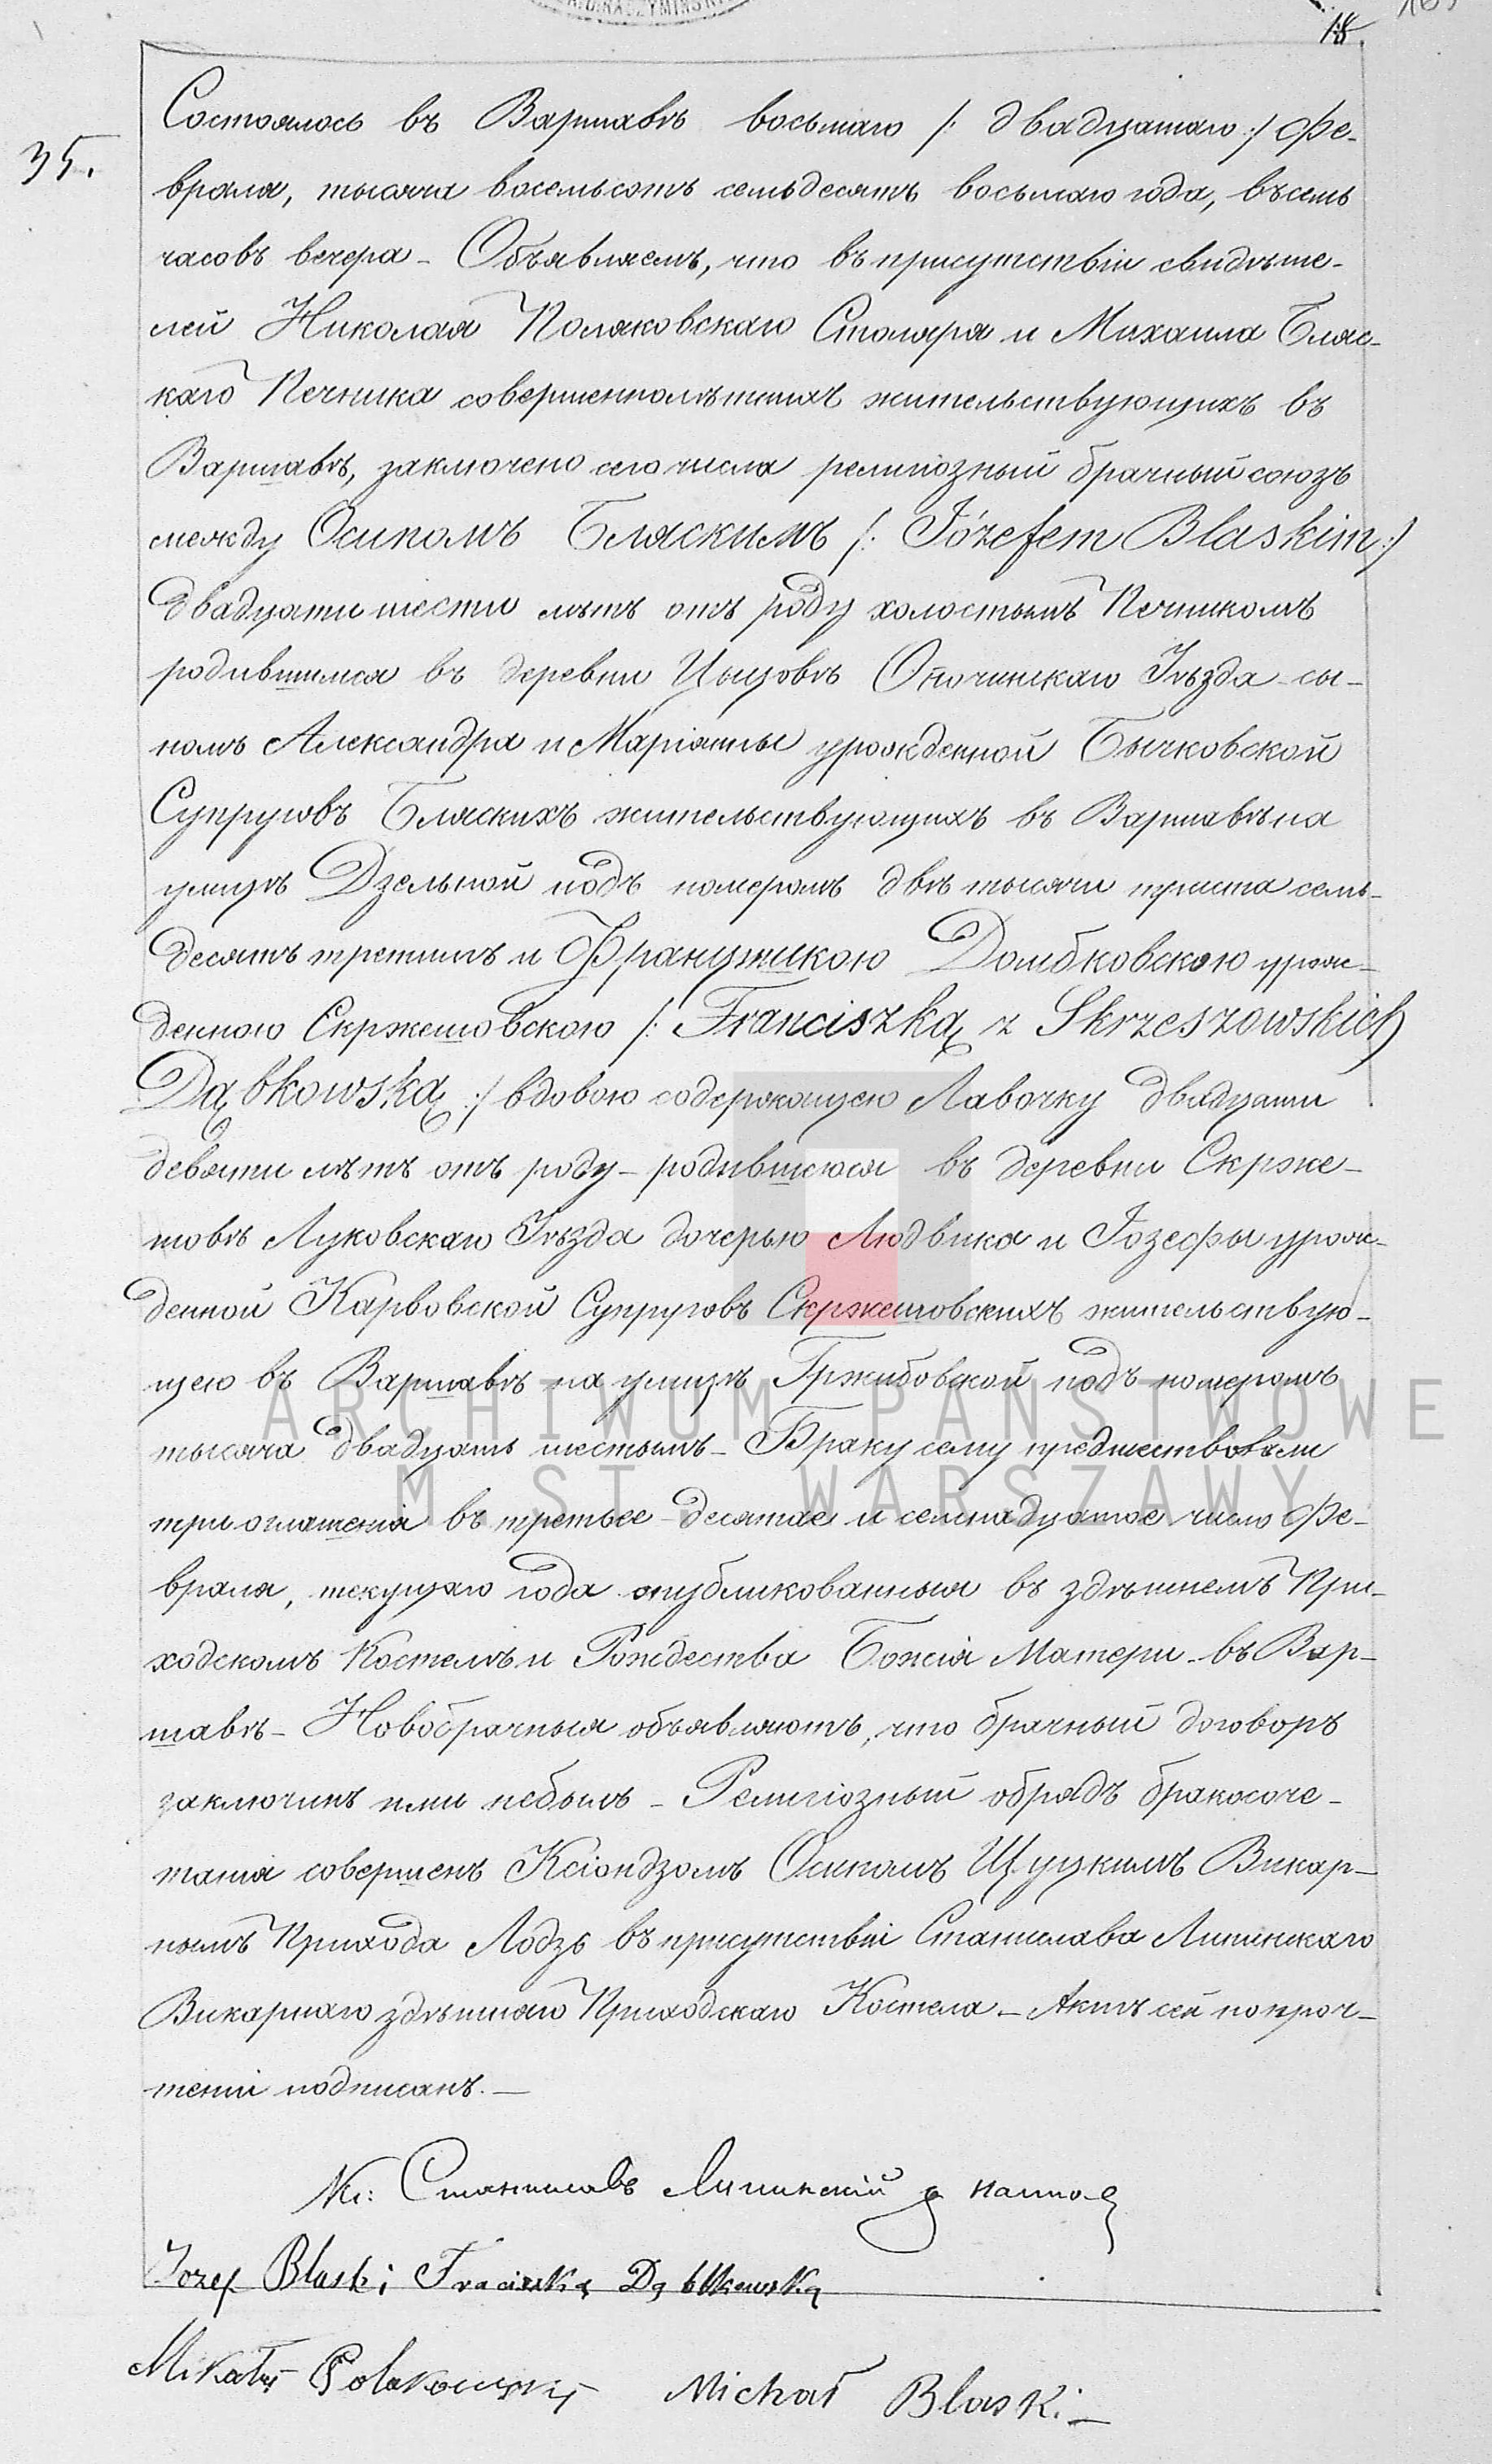 18.
35.
Состоялось въ Варшавѣ восьмаго /: двадцатаго :/ Фе-
враля, тысяча восемьсотъ семьдесятъ восьмаго года, въ семь
часовъ вечера – Объявляемъ, что въ присутствіи свидѣте-
лей Николая Поляковскаго Столяра и Михаила Бляс-
каго Печника совершеннолѣтнихъ жительствующихъ въ
Варшавѣ, заключено сего числа религіозный брачный союзъ
между Осипомъ Бляскимъ /: Józefem Blaskim :/
двадцати шести лѣтъ отъ роду холостымъ Печникомъ
родившимся въ деревни Цыцовѣ Опочинскаго Уѣзда – сы-
номъ Александра и Маріанны урожденной Бычковской
Супруговъ Бляскихъ жительствующихъ въ Варшавѣ на
улицѣ Дзельной подъ номеромъ двѣ тысячи триста семь-
десятъ третимъ и Францишкою Домбковскою урож-
денною Скржешовскою /: Franciszką z Skrzeszowskich
Dąbkowską :/ вдовою содержащею Лавочку двадцати
девяти лѣтъ отъ роду – родившеюся въ деревни Скрже-
шовѣ Луковскаго Уѣзда дочерью Людвика и Іозефы урож-
денной Карвовской Супруговъ Скржешовскихъ жительствую-
щею въ Варшавѣ на улицѣ Гржибовской подъ номеромъ
тысяча двадцать шестымъ – Браку сему предшествовали
три оглашенія въ третье – десятое и семнадцатое число Фе-
враля, текущаго года опубликованныя въ здѣшнемъ При-
ходскомъ Костелѣ и Рождества Божія Матери – въ Вар-
шавѣ – Новобрачныя объявляютъ, что брачный договоръ
заключинъ ими небылъ – Религіозный обрядъ бракосоче-
танія совершенъ Ксіондзомъ Осипомъ Щуцкимъ Викар-
нымъ Прихода Лодзь въ присутствіи Станислава Липинскаго
Викарнаго здѣшняго Приходскаго Костела – Актъ сей по проч-
теніи подписанъ. —
Кс: Станиславъ Липинскій
Józef Blaski Franciszka Dąbkowska
Mikołaj Polakowski Michał Blaski
ARCHIWUM PAŃSTWOWE
M. ST. WARSZAWY